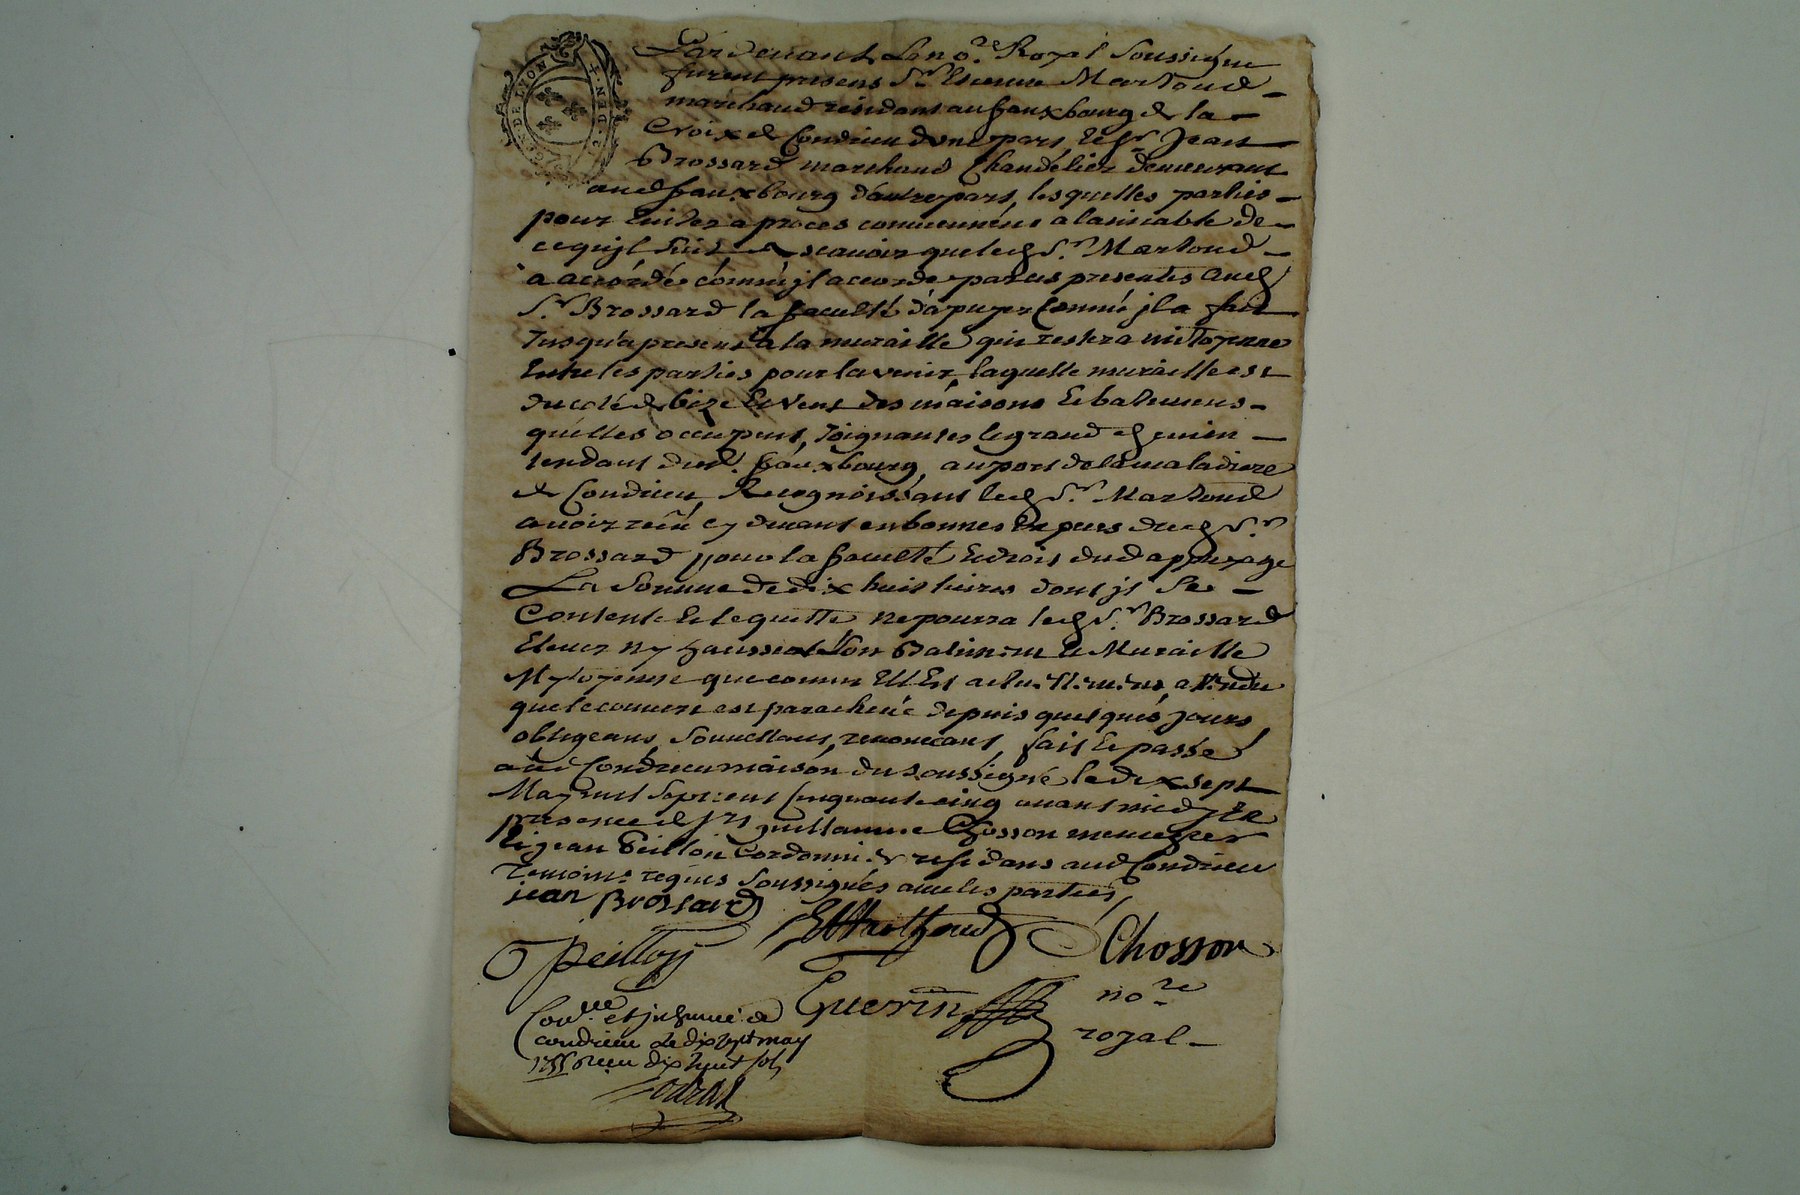 GEN. DE LYON
Pardevant Le no.re Royal soussigné
furent presens Sr. Etienne Marthoud
marchand résidant au fauxbourg de la
Croix de Condrieu d'une part, le Sr. Jean
Brossard marchand Chandélier demeurant
aud. fauxbourg d'autre part, lesquelles parties
pour Eviter a procés conviennéns a lamiable de
ce quyl suit scavoir que led. Sr. Martoud
a accordé commé jl accorde par ces presentes aud.
Sr. Brossard la faculté dápuyer Commé jl a fait
Jusquá present a la muraille qui restera mitoyenne
Entre les parties pour lavenir, laquelle muraille est
du coté de bize Et Vent des maisons Et batimens
quélles occupent, Joignant le grand chemin
tendant dud. fauxbourg, au port de la maladiere
de Condrieu, Recognoissant led. Sr. Martoud
avoir reçû cy devant en bonnes Especes dud. Sr.
Brossard pour la faculté Et droit dud. appuyage
La Somme de dix huit livres dont jl Se
Contente Et le quitte ne pourra led. Sr. Brossard
Elever ny hausser Son Batiment Et Muraille
Mytoyenne que comm Ell Est actuellement, attendu
que le couvert est parachevé depuis quelqués jours
obligeans, Soumettans, renoncans, fait Et passé
aud. Condrieu maison du soussigné le dix sept
May mil Sept cent Cinquante cinq avant midy En
presence de Guillaume Chosson
Et Jean Peillon Cordonnier residans aud. Condrieu
Temoins requis Soussignés avec les parties,
jean Brossard
EMarthoud
Chosson
Peillon
Guerin
no.re
royal
Con.lle et insinué a
condrieu Le dix sept may
1755 Reçu dix huit sols